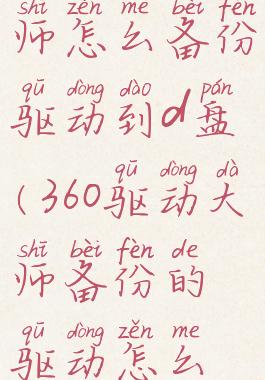 shī zěn me bèi fèn
师怎么备份
qū dòng dào pán
驱动到d盘
qū dòng dà
(360驱动大
shī bèi fèn de
师备份的
qū dòng zěn me
驱动怎么